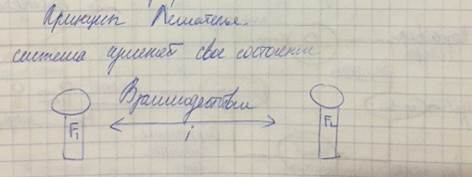 Принцип Лешателье.
система изменяет свое состояние
Взаимодействия
F₁ i F₂